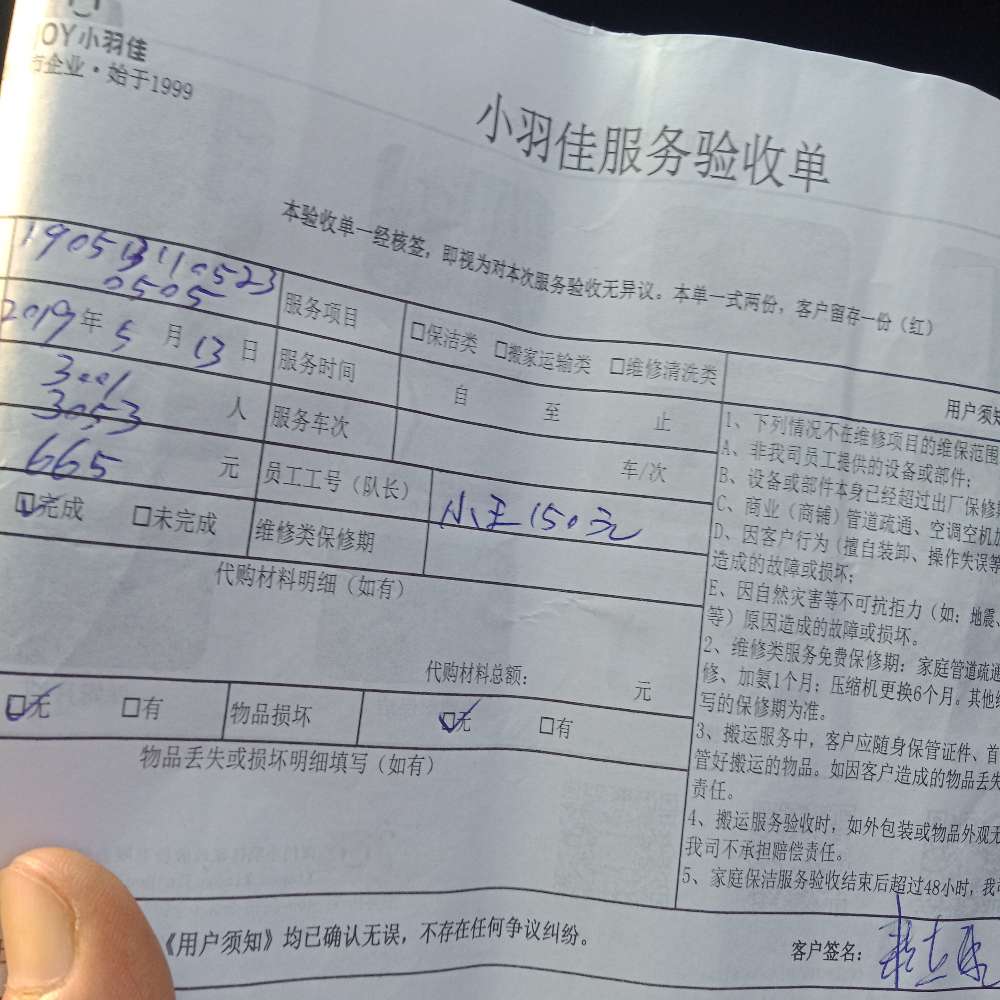 OY小羽佳
企业·始于1999
小羽佳服务验收单
本验收单一经核签，即视为对本次服务验收无异议。本单一式两份，客户留存一份（红）
190513110523
0505
服务项目
□保洁类 □搬家运输类 □维修清洗类
2019年5月13日
服务时间
自 至 止
3001
3053
人
服务车次
车/次
665 元
员工工号（队长）
小王150元
☑完成 □未完成
维修类保修期
代购材料明细（如有）
代购材料总额： 元
☑无 □有
物品损坏
☑无 □有
物品丢失或损坏明细填写（如有）
用户须知
1、下列情况不在维修项目的维保范围
A、非我司员工提供的设备或部件；
B、设备或部件本身已经超过出厂保修期
C、商业（商铺）管道疏通、空调空机加
D、因客户行为（擅自装卸、操作失误等
造成的故障或损坏；
E、因自然灾害等不可抗拒力（如：地震、
等）原因造成的故障或损坏。
2、维修类服务免费保修期：家庭管道疏通
修、加氨1个月；压缩机更换6个月。其他
写的保修期为准。
3、搬运服务中，客户应随身保管证件、首
管好搬运的物品。如因客户造成的物品丢失
责任。
4、搬运服务验收时，如外包装或物品外观无
我司不承担赔偿责任。
5、家庭保洁服务验收结束后超过48小时，我
《用户须知》均已确认无误，不存在任何争议纠纷。
客户签名：